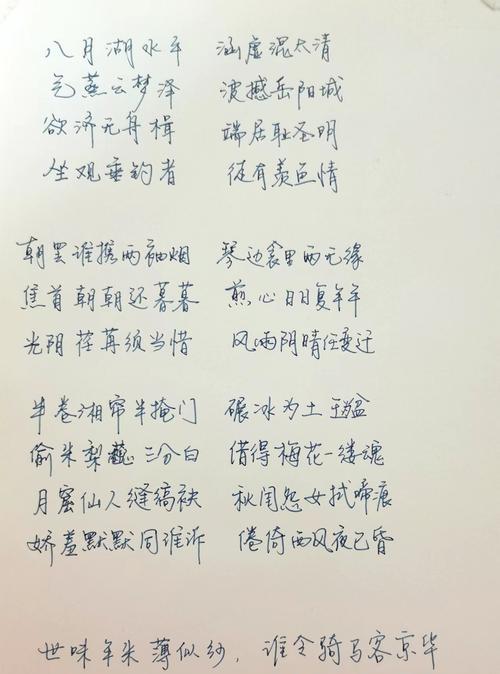 八月湖水平 涵虚混太清
气蒸云梦泽 波撼岳阳城
欲济无舟楫 端居耻圣明
坐观垂钓者 徒有羡鱼情
朝罢谁携两袖烟 琴边衾里两无缘
焦首朝朝还暮暮 煎心日日复年年
光阴荏苒须当惜 风雨阴晴任变迁
半卷湘帘半掩门 碾冰为土玉盆
偷来梨蕊三分白 借得梅花一缕魂
月窟仙人缝缟袂 秋闺怨女拭啼痕
娇羞默默同谁诉 倦倚西风夜已昏
世味年来薄似纱，谁令骑马客京华